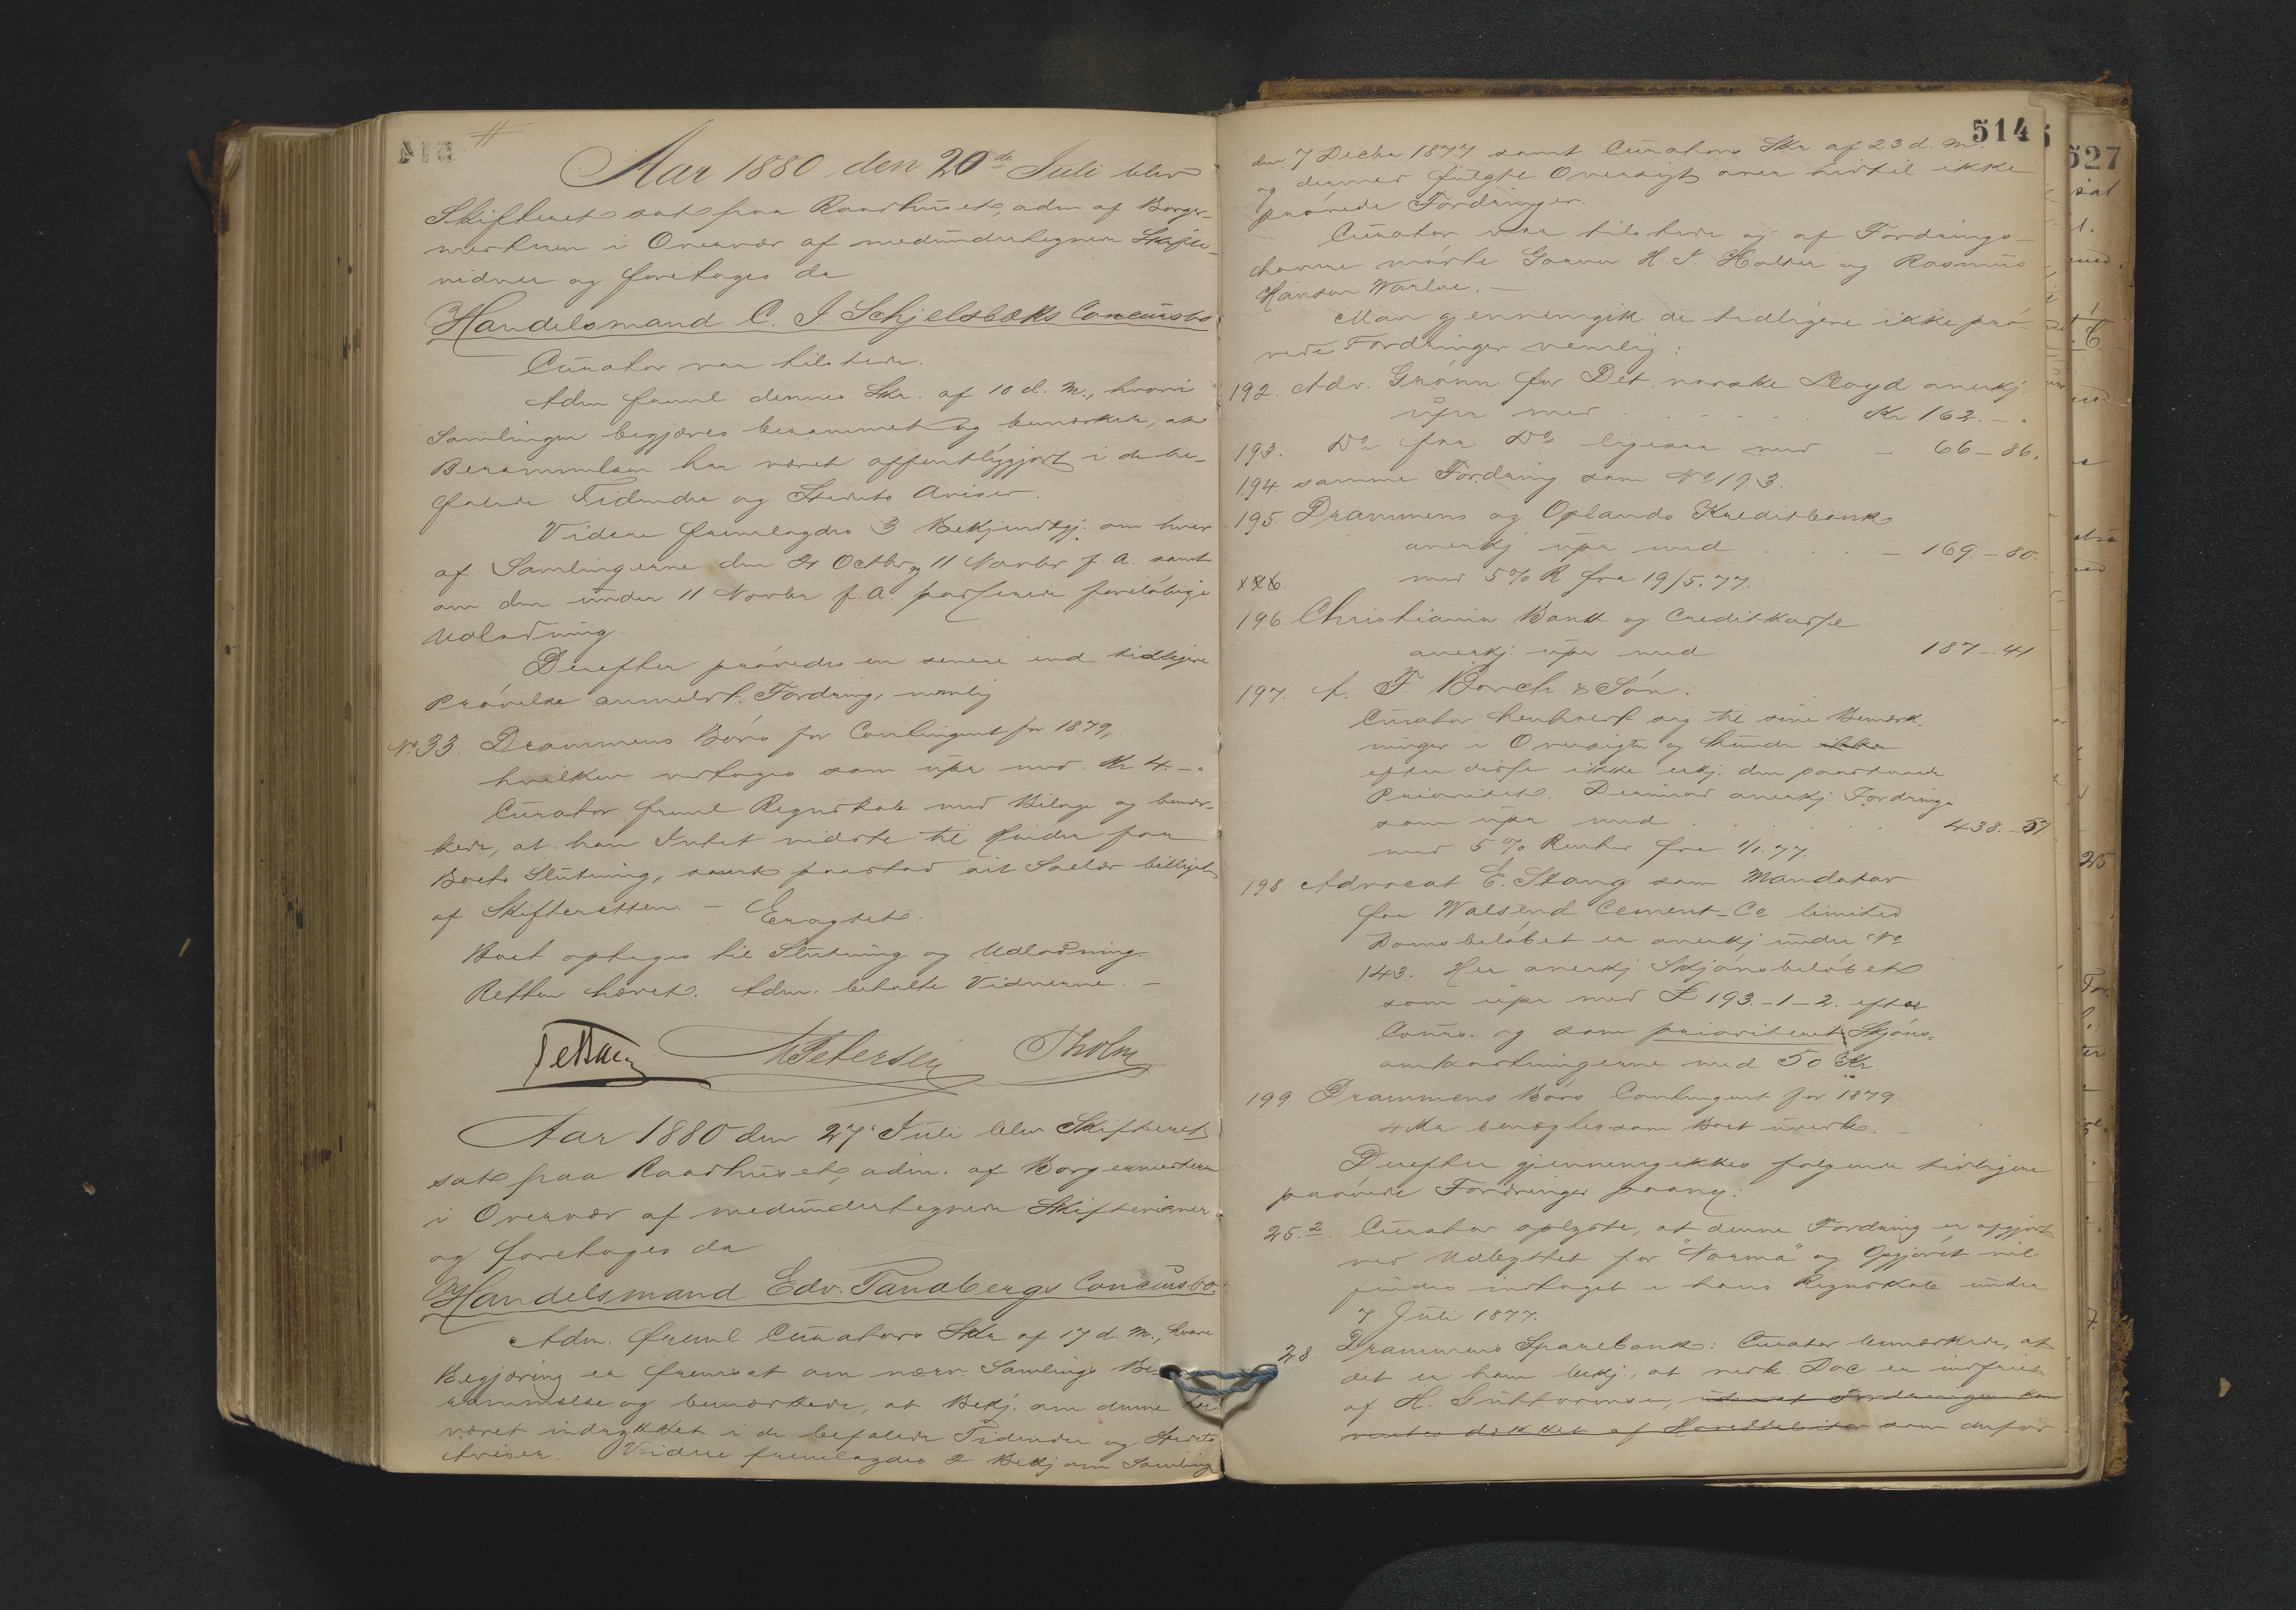 Aar 1880 den 20de Juli blev
Skifteret sat paa Raadhuset, adm af Borger-
mesteren i Overvær af medundertegnede Skifte-
vidner og foretoges da
Handelsmand C. J Schjelsbæks Concursbo
Curator var tilstede.
Adm freml dennes Skr. af 10 d. M., hvori
Samlingen begjæres berammet og bemærkede, at
Berammelsen har været offentliggjort i de be-
falede Tidender og Stedets Aviser.
Videre fremlagdes 3 Bekjendtgj. om hver
af Samlingerne den 21 Octbr og 11 Novbr f. A. samt
om den under 11 Novbr f. A. passerede foreløbige
Udlodning.
Derefter prøvedes en senere end tidligere
Prøvelse anmeldt Fordring, nemlig
No 33. Drammens Børs for Contingent for 1879,
hvilken vedtoges som upr med Kr 4.-"
Curator freml Regnskab med Bilage og bemær-
kede, at han Intet vidste til Hinder for
Boets Slutning, samt paastod sit Salær billiget
af Skifteretten. - Eragtet:
Boet optages til Slutning og Udlodning.
Retten hævet. Adm. betalte Vidnerne. -
M Petersen Tholm
Aar 1880 den 27de Juli blev Skifteret
sat paa Raadhuset, adm. af Borgermesteren
i Overvær af medundertegnede Skiftevidner
og foretoges da
Handelsmand Edv. Tandbergs Concursbo.
Adm. freml Curators Skr af 17 d. M., hvori
Begjæring er fremsat om nærv. Samlings Be-
rammelse og bemærkede, at Bekj. om denne har
været indrykket i de befalede Tidender og Stedets
Aviser. Videre fremlagdes 2 Bekj om Samling
514
527
den 7 Decbr 1877 samt Curators Skr af 23 d. M.
og dermed fulgte Oversigt over hidtil ikke
prøvede Fordringer.
Curator var tilstede og af Fordrings-
haverne mødte Garver H. T Holter og Rasmus
Hansen Warloe. -
Man gjennemgik de tidligere ikke prø-
vede Fordringer nemlig:
192. Adv. Grønn for Det norske Lloyd anerkj.
upr med . . . . Kr 162.-"
193. Do for Do ligesaa med - 66-86.
194. samme Fordring som No 193.
195. Drammens og Oplands Kreditbank
anerkj upr med . . . - 169.-80.
med 5% R fra 19/5.77.
196. Christiania Bank og Creditkasse
anerkj upr med 187-41
197. A. F. Borch & Søn.
Curator henholdt sig til sine Bemærk-
ninger i Oversigten og kunde ikke
efter disse ikke erkj. den paastaaede
Prioritet. Derimod anerkj. Fordringen
som upr med . . . . . 438.-57
med 5% Renter fra 1/1.77.
198 Advocat E. Stang som Mandatar
for Walsend Cement-Co limited
Domsbeløbet er anerkj under No
143. Her anerkj. Skjønsbeløbet
som upr med £ 193.-1-2. efter
Cours. og som prioriteret Skjøns-
omkostningerne med 50 Kr.
199 Drammens Børs Contingent for 1879
4 Kr benægtes som Boet uvedk. -
Derefter gjennemgikkes følgende tidligere
prøvede Fordringer paany:
25.2. Curator oplyste, at denne Fordring er afgjort
ved Udbyttet for "Norma" og Opgjøret vil
findes indtaget i hans Regnskab under
7 Juli 1877.
28. Drammens Sparebank: Curator bemærkede, at
det er ham bekj., at vedk. Doc er indfriet
af H. Guttormsen, uden at Fordringen kan
ventes dækket af Hoveddebitor som derfor